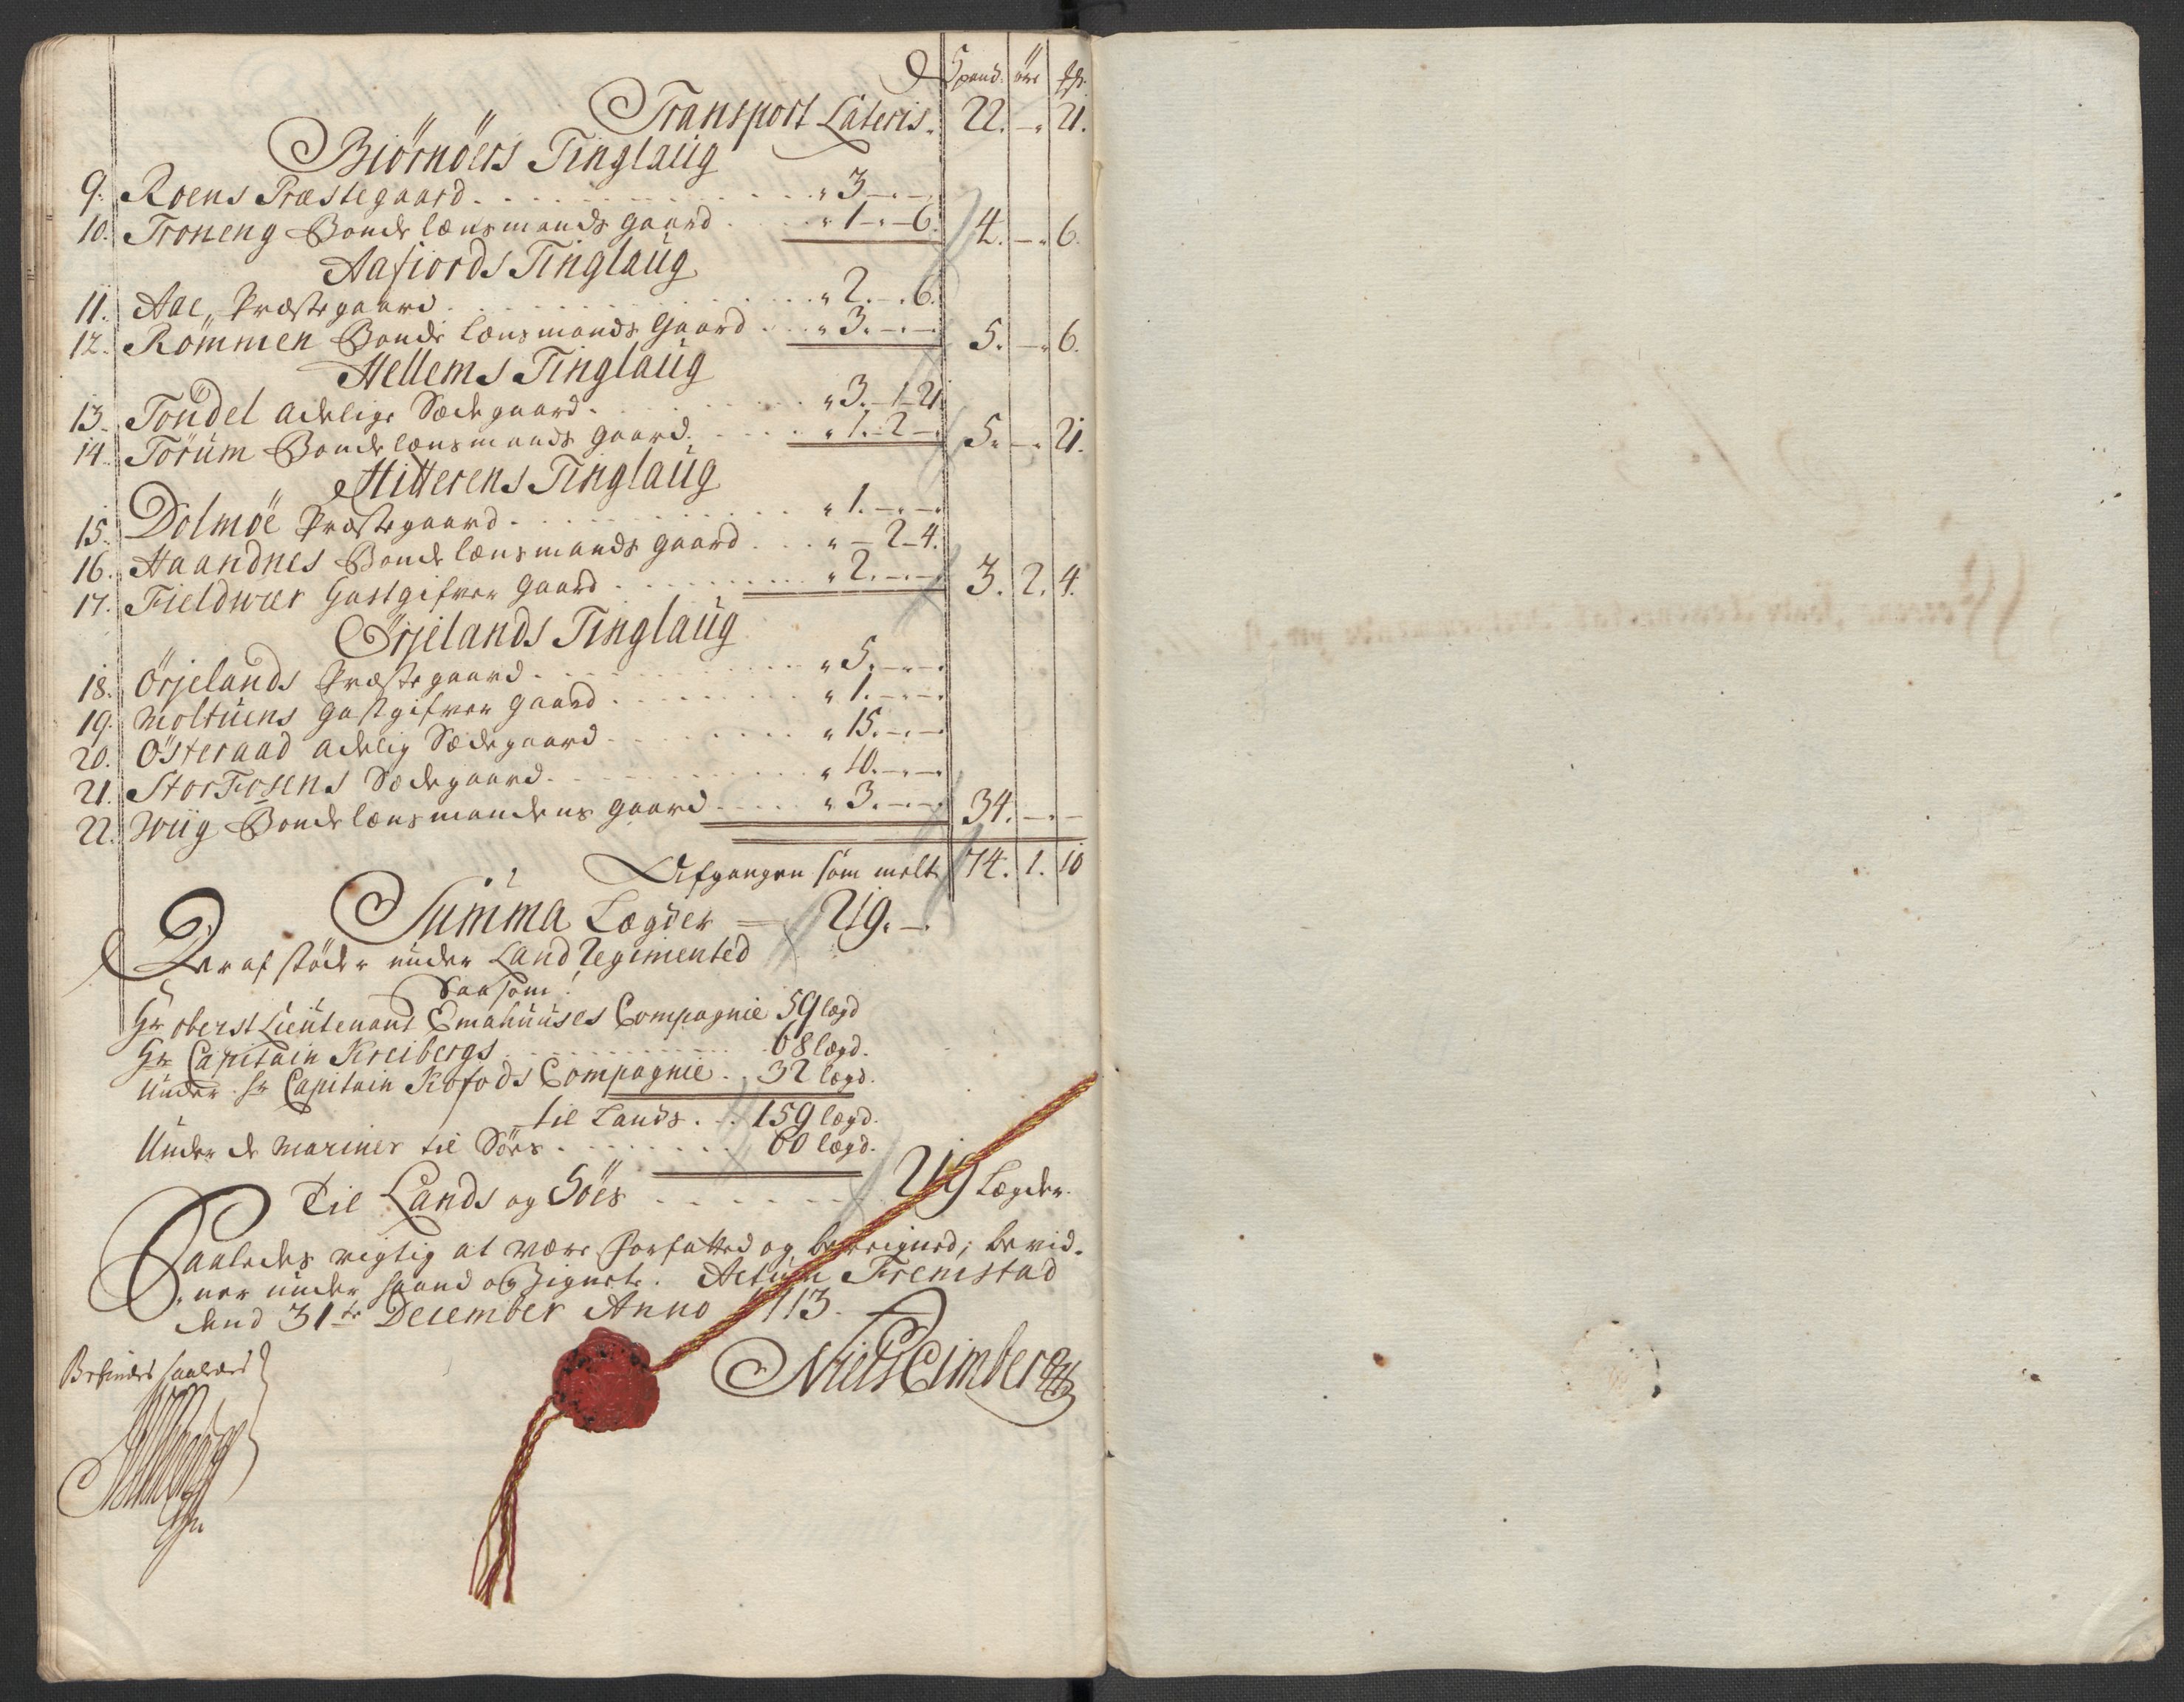 Spand. öre ℔.
Transport Lateris. 22. -. 21.
Biörnöers Tinglaug
9. Roens Præstegaard . . . 3 -. -.
10. Troneng Bonde lænsmands gaard . . 1 -. - 6. 4. -. 6.
Aafiords Tinglaug
11. Aae, Præstegaard . . . 2. -. 6.
12. Römmen Bonde lænsmands Gaard . . . 3. -. -. 5. -. 6.
Hellems Tinglaug
13. Tøndel Adelige Sædegaard . . . 3. - 1 - 21.
14. Törum Bonde lænsmands gaard . . . 1. - 2 -. 5. -. 21.
Hitterens Tinglaug
15. Dolmöe Præstegaard . . . 1. -. -.
16. Haandnes Bonde lænsmands gaard . . . - 2 - 4.
17. Fieldwær Gastgifver gaard . . . 2. -. -. 3. 2. 4.
Örjelands Tinglaug
18. Örjelands Præstegaard . . . 5. -. -.
19. Moltuens gastgifver gaard . . . 1. -. -.
20. Österaad Adelig Sædegaard . . . 15. -. -.
21. StorFosens Sædegaard . . . 10. -. -.
22. Wiig Bonde lænsmandens gaard . . . 3. -. -. 34. -. -
Afgangen som melt 74. 1. 10
Summa Lægder = 219. -.
Deraf støder under Land Regimented
Saasom!
Hr oberst Lieutenant Emahuuses Compagnie 59 lægd
Hr Capitain Kreibergs . . . 68 lægd.
Under Hr Capitain Kofods Compagnie . . 32 lægd.
til Lands . . . 159 lægd.
Under de Mariner til Söes . . . 60 lægd.
Til Lands og Söes . . . 219 Lægder.
Saaledes rigtig at være forfatted og beregned; bevid-
ner under haand og Zignete. Actum Fremstad
dend 31te December Anno 1713.
Niels Cimber
Befindes saaledes